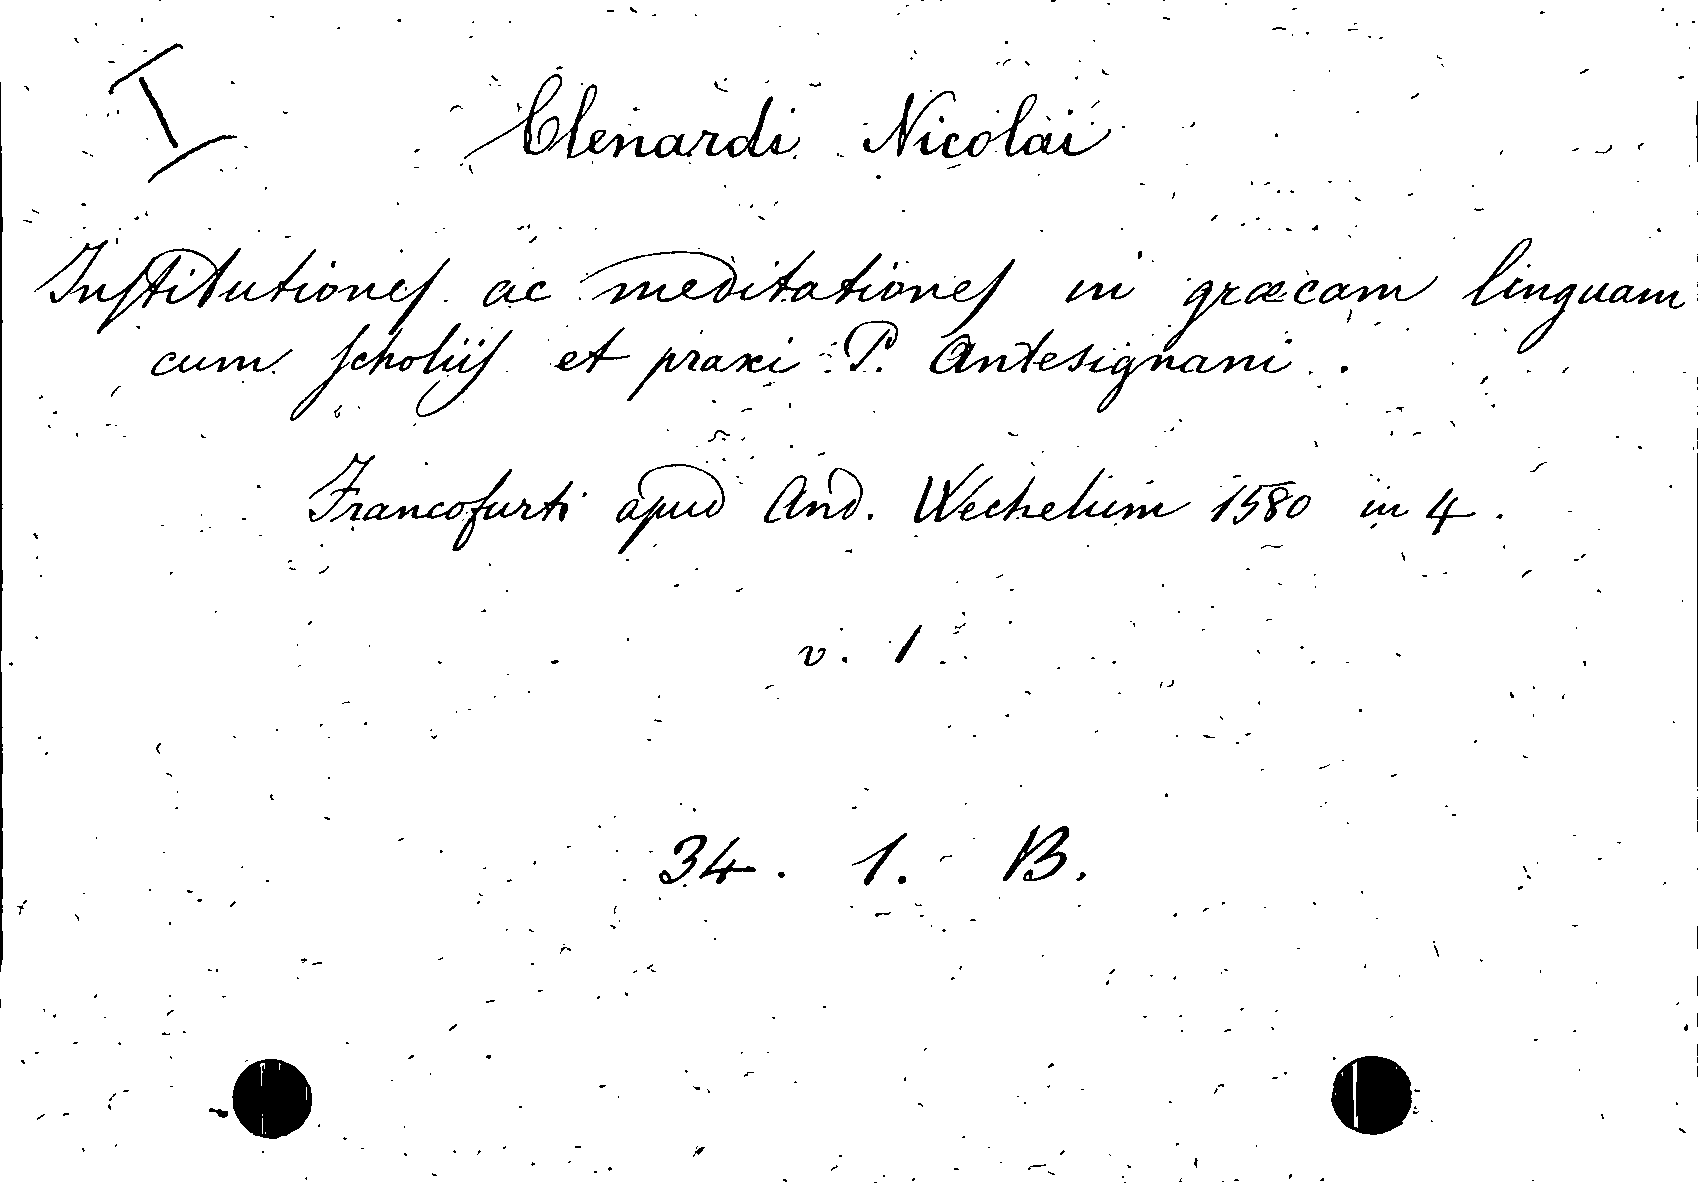 I
Clenardi Nicolai
Institutiones ac meditationes in græcam linguam
cum scholiis et praxi P. Antesignani.
Francofurti apud And. Wechelum 1580 in 4.
v. 1
34. 1. B.